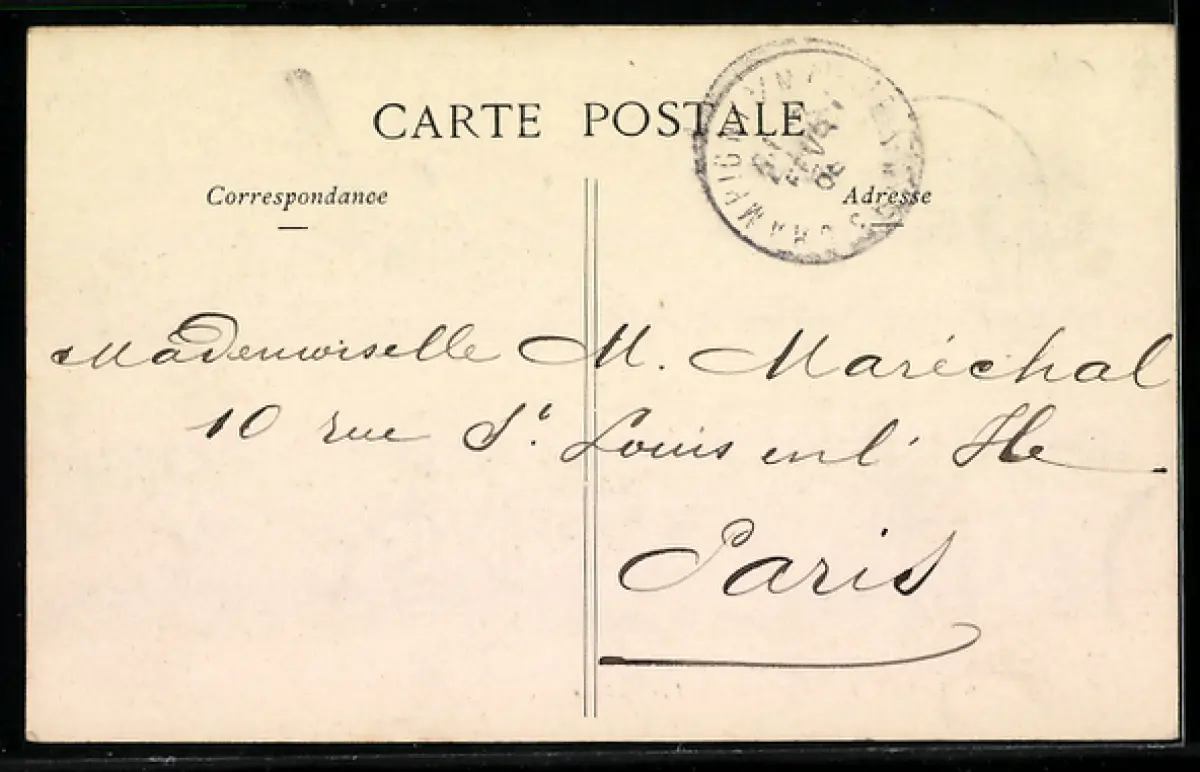 CARTE POSTALE
Correspondance
Adresse
Mademoiselle M. Maréchal
10 rue St. Louis en l' Ile
Paris